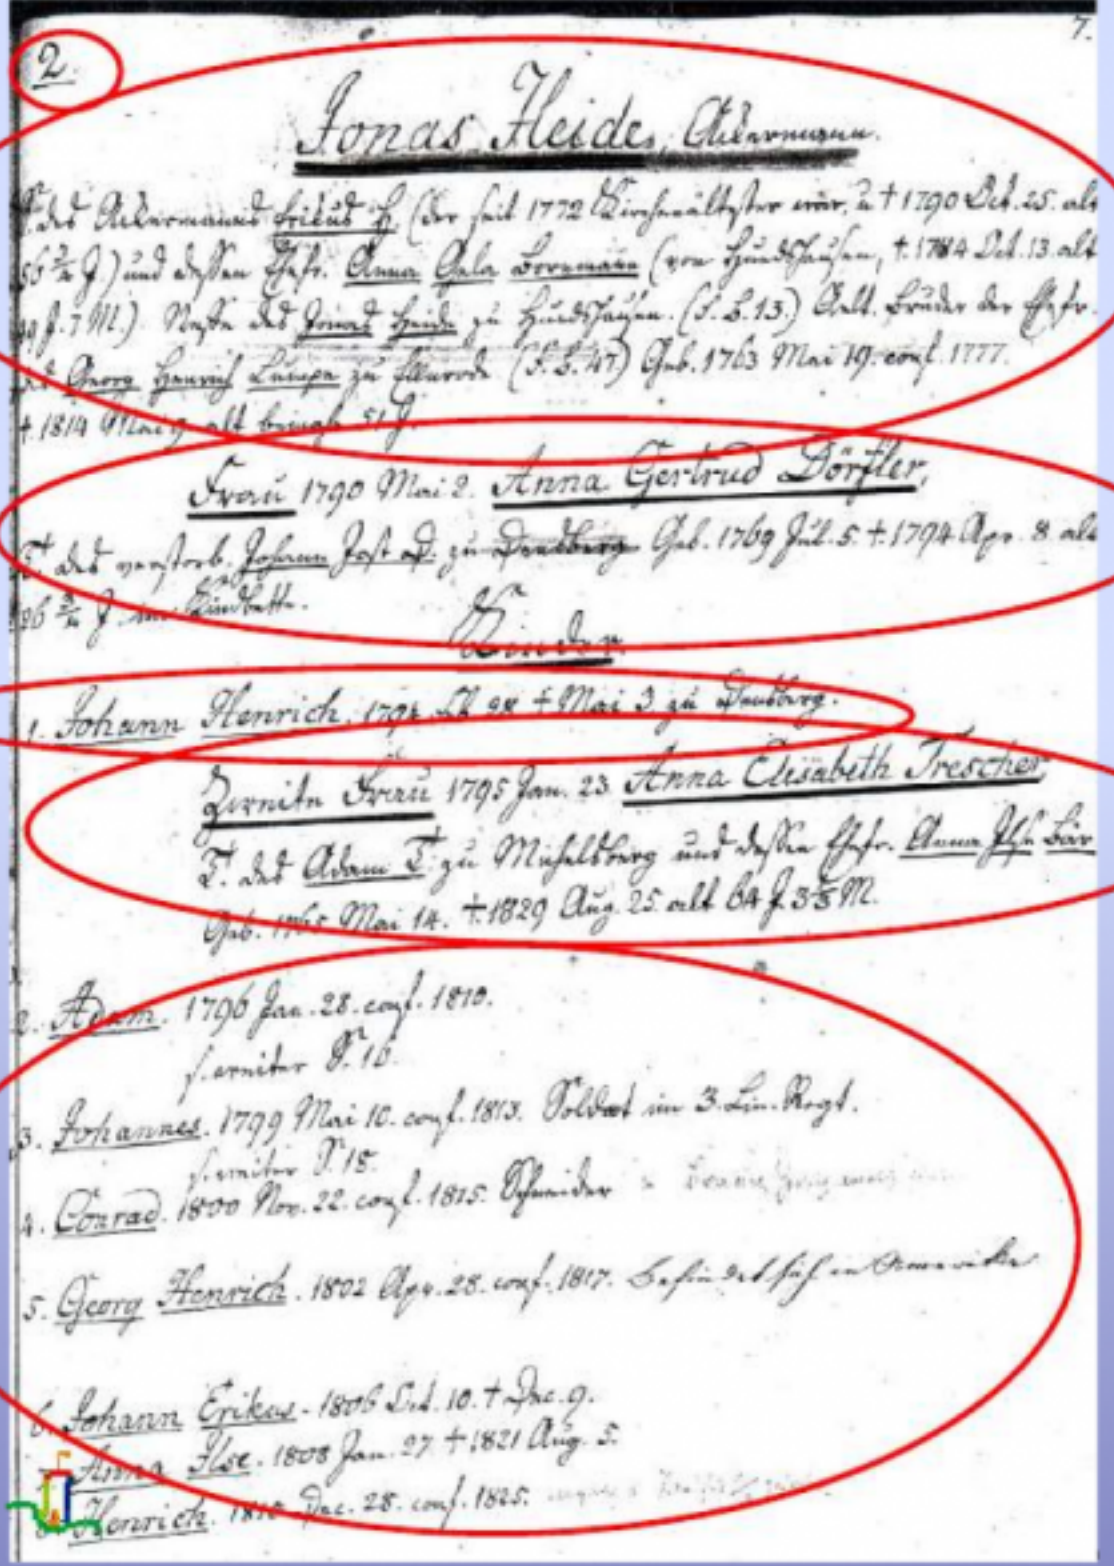 7.
2.
Jonas Heide, Ackermann.
S. des Ackermanns Erikus H. (der seit 1772 Kirchenältester war, u. † 1790 Oct. 25. alt
56 J.) und dessen Ehefr. Anna Gela Bornmann (von Hundshausen, † 1784 Oct. 13. alt
J. 7 M.) Neffe des Jonas Heide zu Hundshausen. (F. B. 13.) Aelt. Bruder der Ehefr.
des Georg Henrich Lumpe zu Ellnrode (F. B. 47.) Geb. 1763 Mai 19. conf. 1777.
† 1814 Mai 9 alt beinah 51 J.
Frau 1790 Mai 2. Anna Gertrud Dörfler,
T. des verstorb. Johann Jost D. zu Densberg Geb. 1769 Jul. 5. † 1794 Apr. 8. alt
26 J. im Kindbette.
Kinder.
1. Johann Henrich. 1794 † Mai 3 zu Densberg.
Zweite Frau 1795 Jan. 23. Anna Elisabeth Trescher,
T. des Adam T. zu Michelsberg und dessen Ehefr. Anna Ilse Bär
Geb. 1765 Mai 14. † 1829 Aug. 25 alt 64 J. 3 M.
2. Adam. 1796 Jan. 28. conf. 1810.
s. weiter S. 16.
3. Johannes. 1799 Mai 10. conf. 1813. Soldat im 3. Lin. Regt.
s. weiter S. 15.
4. Conrad. 1800 Nov. 22. conf. 1815. Schneider
5. Georg Henrich. 1802 Apr. 28. conf. 1817. Befindet sich in Amerika
6. Johann Erikus. 1806 Oct. 10. † Dec. 9.
7. Anna Ilse. 1808 Jan. 27 † 1821 Aug. 5.
8. Henrich. 1810 Dec. 28. conf. 1825.